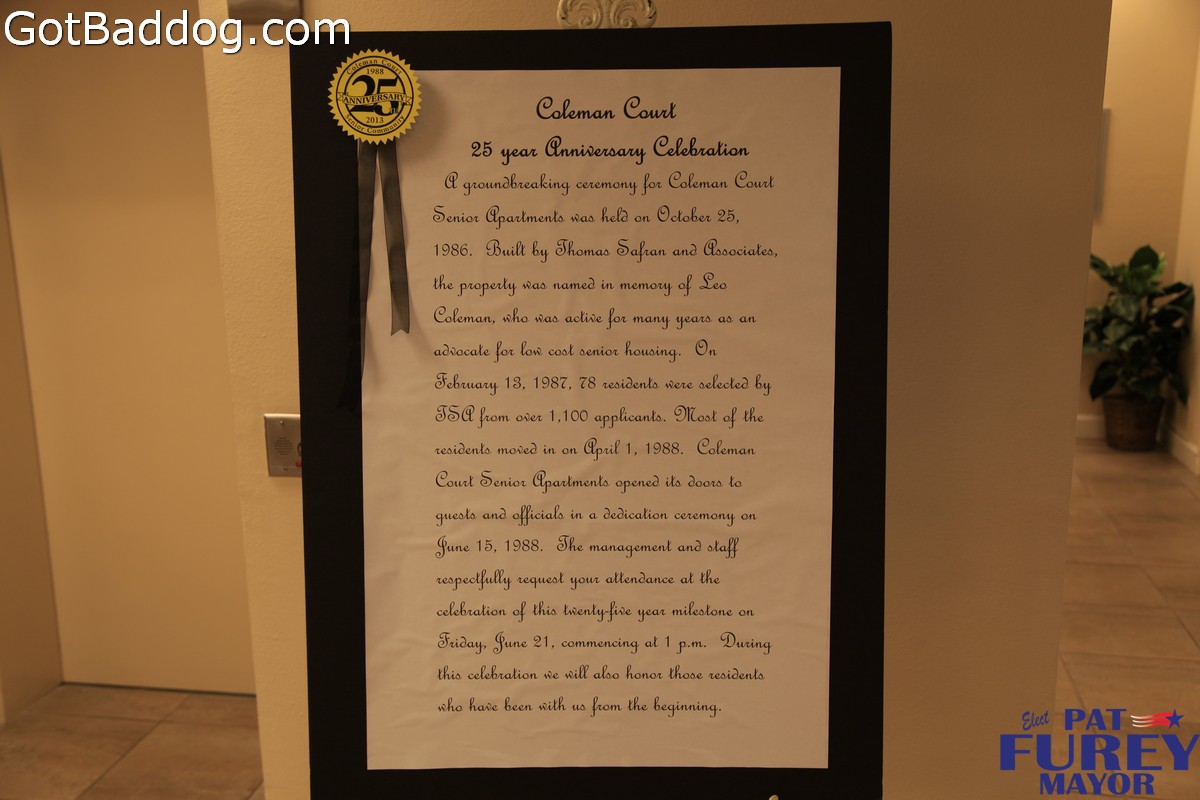 GotBaddog.com
Coleman Court
1988
25
ANNIVERSARY
2013
Senior Community
Coleman Court
25 year Anniversary Celebration
A groundbreaking ceremony for Coleman Court
Senior Apartments was held on October 25,
1986. Built by Thomas Safran and Associates,
the property was named in memory of Leo
Coleman, who was active for many years as an
advocate for low cost senior housing. On
February 13, 1987, 78 residents were selected by
TSA from over 1,100 applicants. Most of the
residents moved in on April 1, 1988. Coleman
Court Senior Apartments opened its doors to
guests and officials in a dedication ceremony on
June 15, 1988. The management and staff
respectfully request your attendance at the
celebration of this twenty-five year milestone on
Friday, June 21, commencing at 1 p.m. During
this celebration we will also honor those residents
who have been with us from the beginning.
Elect PAT
FUREY
MAYOR